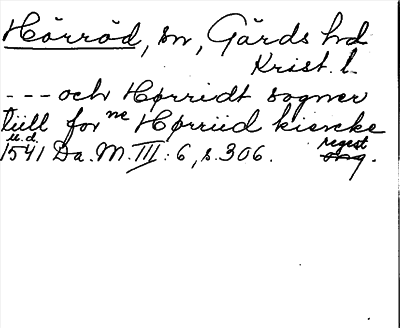 Hörröd, sn, Gärds hd
Krist. l.
--- och Hørridt sogner
tiill for ne Hørriid kiercke
u.d. regest
1541 Da. M. III: 6, s. 306. orig.